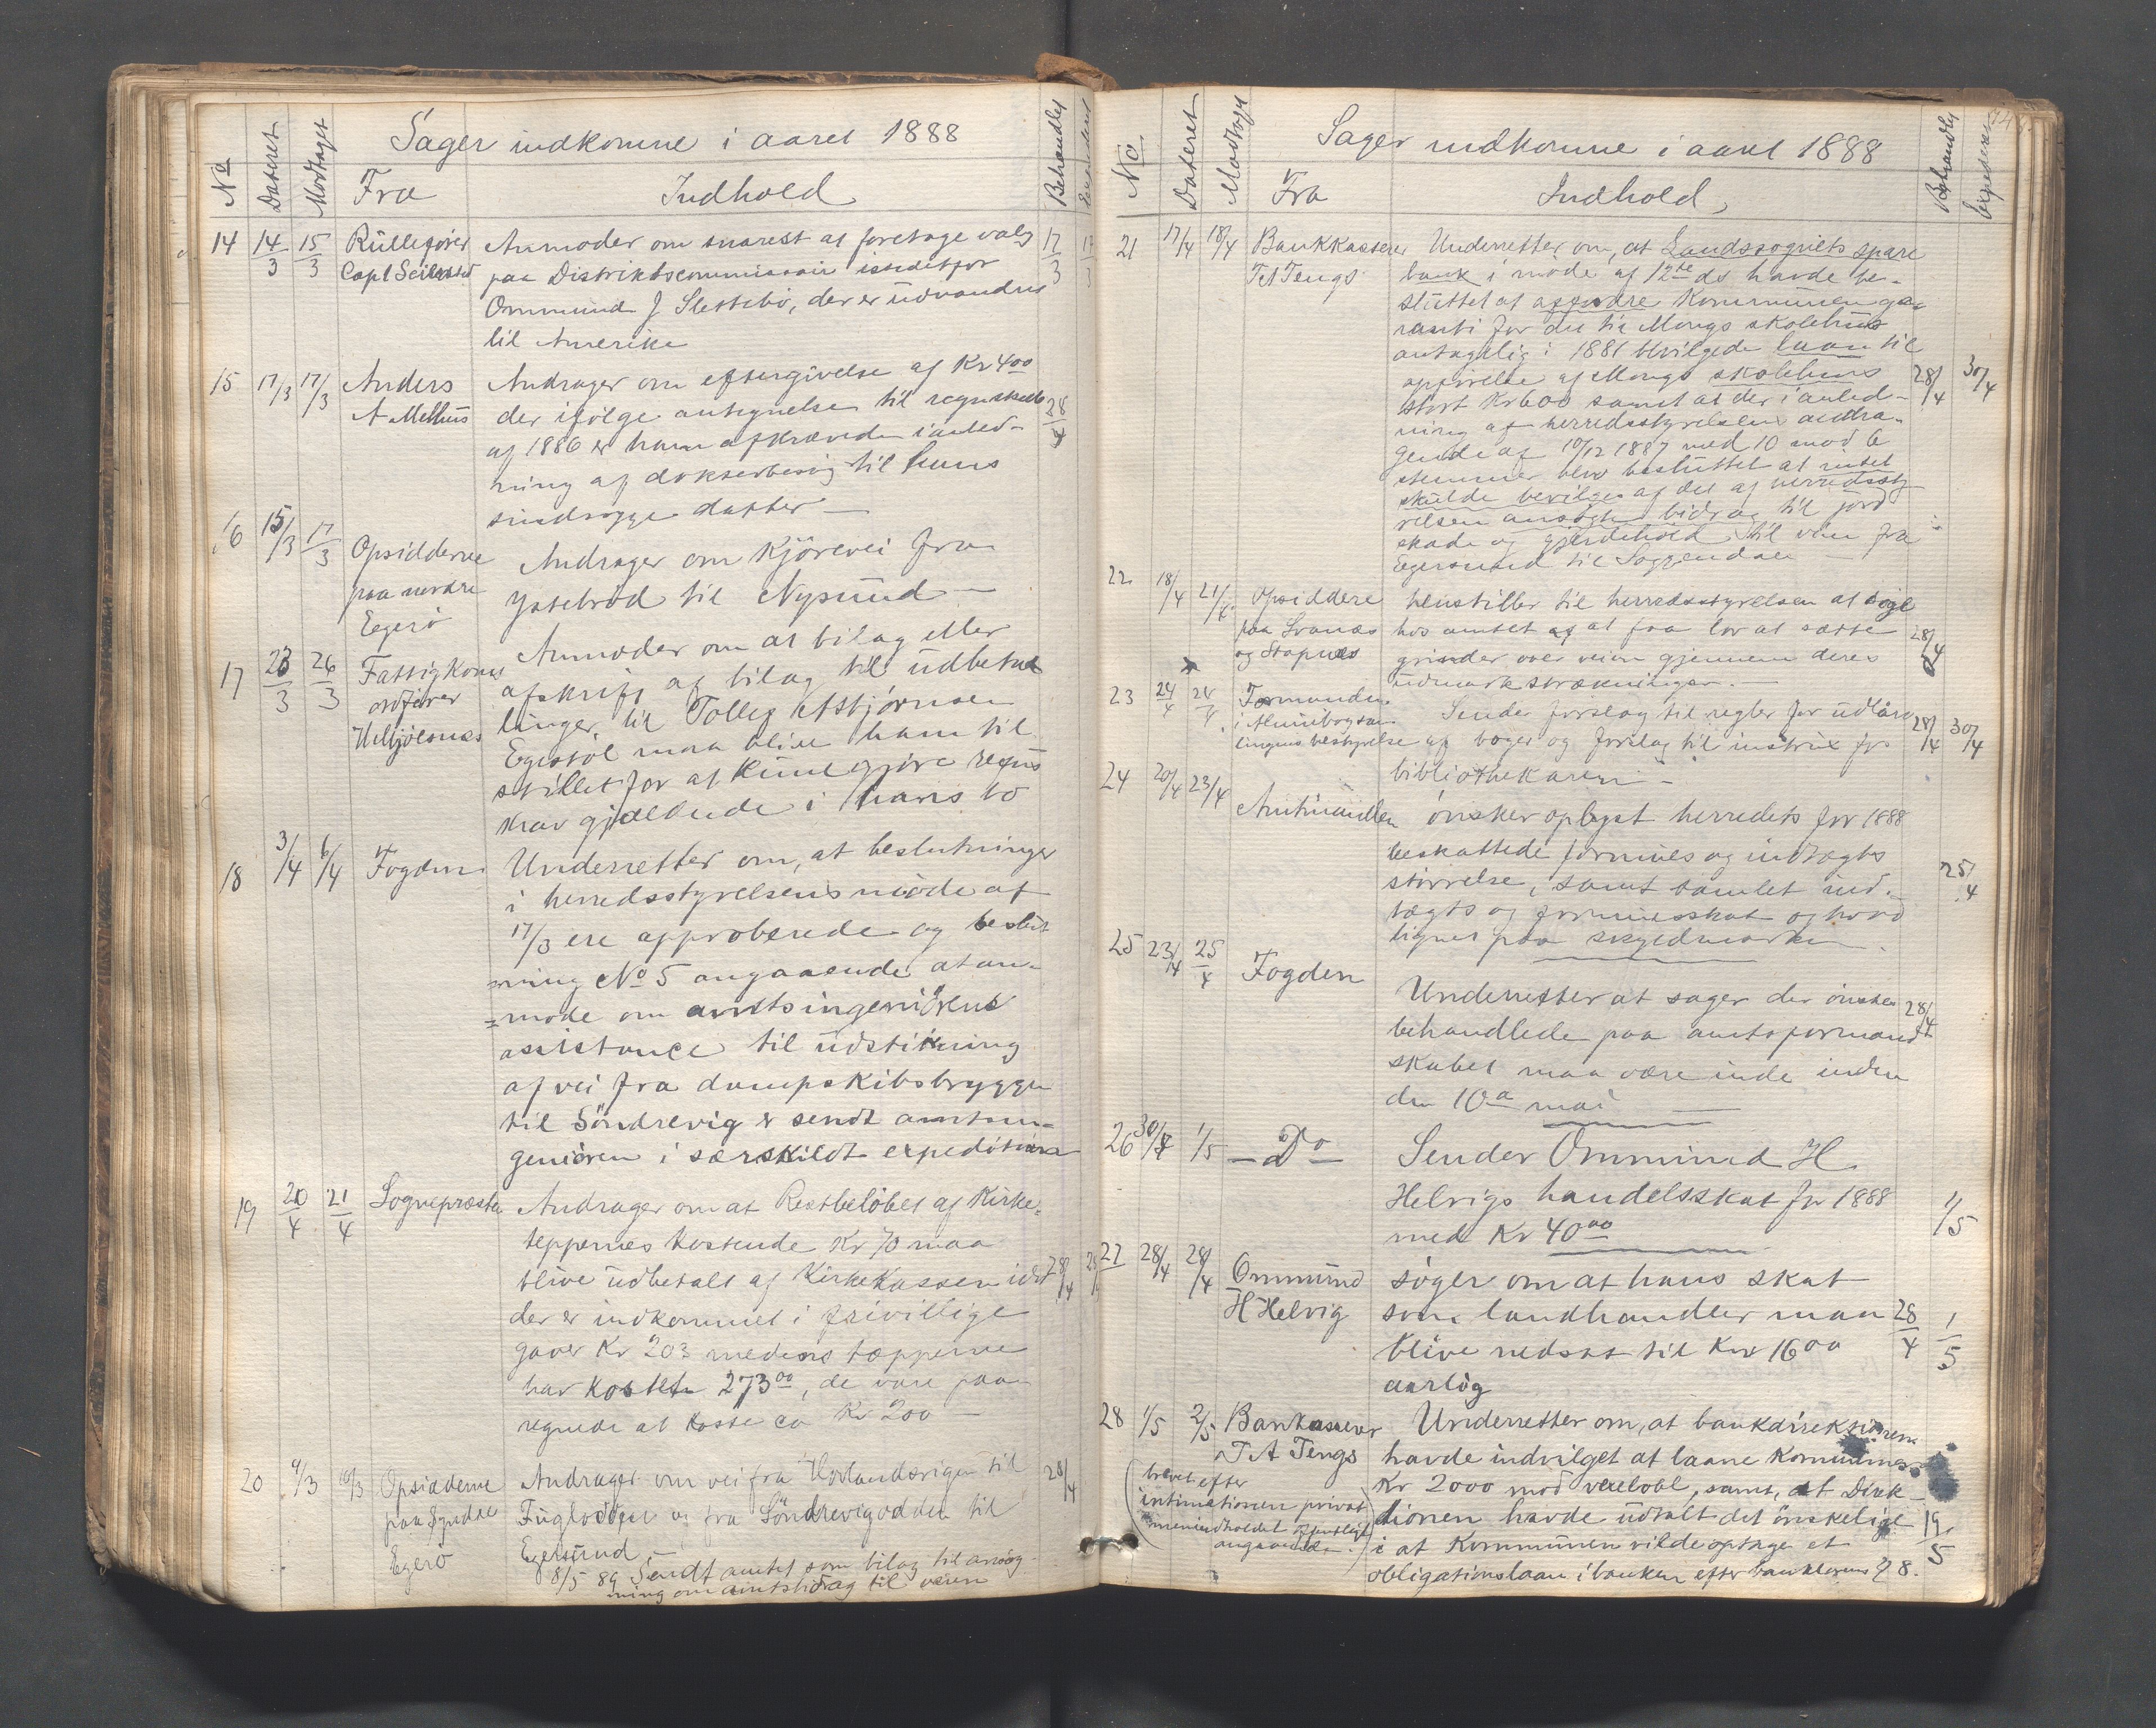 Sager indkomne i aaret 1888
No Dateret Modtaget Fra Indhold Behandlet
14 14/3 15/3 Rullefører Anmoder om snarest at foretage valg 17/3
Capt Seilersted paa Distriktscommissair istedetfor
Ommund J Slettebø, der er udvandret
til Amerika
15 17/3 17/3 Anders Andrager om eftergivelse af Kr 4 00
A Mellhus der ifølge antegnelse til regnskab 28/4
af 1886 er ham afkrævede i anled-
ning af doktorbesøg til hans
sindsyge datter —
16 15/3 17/3 Opsidderne Andrager om Kjørevei fra
paa nordre Ystebrød til Nysund —
Egerø
17 23/3 26/3 Fattigkoms Anmoder om at bilag eller
ordfører afskrift af bilag til udbetal
H Mjølsnæs linger til Tolleg Asbjørnsen
Egestøl maa blive ham til
stillet for at kunne gjøre refus
krav gjældende i hans bo
18 3/4 6/4 Fogden Underretter om, at beslutninger
i herredsstyrelsens møde af
17/3 ere approberede og beslut
ning No 5 angaaende at an-
=mode om amtsingeniørens
asistance til udstikning
af vei fra dampskibsbryggen
til Söndrevig er sendt amtsin-
geniøren i særskildt expedition
19 20/4 21/4 Sognepræsten Andrager om at Restbeløbet af Kirke-
teppernes kostende Kr 70 maa
blive udbetalt af Kirkekassen idet 28/4
der er indkommet i frivillige
gaver Kr 203 medens tæpperne
har kostet 273 00, de vare paa-
regnede at koste ca Kr 200 —
20 9/3 10/3 Opsidderne Andrager om vei fra Hovlandsvigen til 28/4
paa søndre Fuglodden og fra Söndrevigodden til
Egerö Egersund —
8/5 89 Sendt amtet som bilag til ansøg-
ning om amtsbidrag til veien
Sager indkomne i aaret 1888
No. Dateret Modtaget Fra Indhold Behandlet Expederet
21 17/4 18/4 Bankkasserer Underretter om, at Landssognets spare
T A Tengs bank i møde af 12te ds havde be-
sluttet at affordre Kommunen ga-
ranti for det til Mongs skolehus
antagelig i 1881 bevilgede laan til
opførelse af Mongs skolehus
stort Kr 600 samt at der i anled- 28/4 30/4
ning af herredsstyrelsens andra-
gende af 10/12 1887 med 10 mod 6
stemmer blev besluttet at intet
skulde bevilges af det af herredssty-
relsen ansøgte bidrag til jord
skade og gjerdehold til veien fra
Egersund til Soggendal —
22 18/4 21/4 Opsiddere henstiller til herredsstyrelsen at søge
paa Svanæs hos amtet af at faa lov at sætte 28/4
og Stapnes grinder over veien gjennem deres
udmarkstrækninger. —
23 24/4 24/4 Formanden Sender forslag til regler for udlaan 28/4 30/4
i Almuebogsam
lingens bestyrelse af bøger og forslag til instrux for
bibliothekaren —
24 20/4 23/4 Amtmanden ønsker oplyst herredets for 1888
beskattede formues og indtægts 25/4
størrelse, samt samlet ind-
tægts og formuesskat og hvad
lignet paa skyldmarken.
25 23/4 25/4 Fogden Underretter at sager der ønskes 28/4
behandlede paa amtsformand-
skabet maa være inde inden
den 10 a mai —
26 30/4 1/5 — Do — Sender Ommund H
Helvigs handelsskat for 1888 1/5
med Kr 40 00
27 28/4 28/4 Ommund søger om at hans skat
H Helvig som landhandler maa 28/4 1/5
blive nedsat til Kr 16 00
aarlig
28 1/5 2/5 Bankasserer Underretter om, at bankdirektionen
T A Tengs havde indvilget at laane Kommunen
(brevet efter Kr 2000 mod vexelobl, samt, at Direk-
intimationen privat tionen havde udtalt det ønskelige 19/5
men indholdet offentligt i at Kommunen vilde optage et
angaaende) obligationslaan i banken efter banklovens § 8.